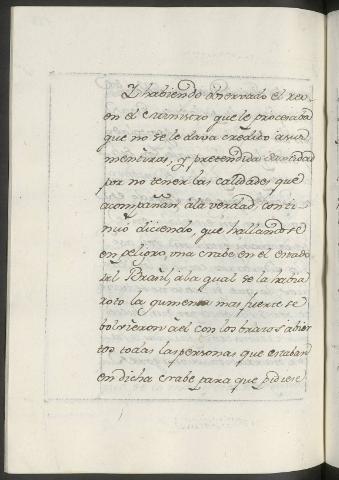 Y habiendo observado el reo
en el Ministro que le procesaba
que no se le dava credido a sus
mentiras, y pretendida santidad
por no tener las calidades que
acompañan, ala verdad; conti-
nuó diciendo, que hallandose
en peligro, una Nabe en el estado
del Brasil, ala qual se la habia
roto la gumena mas fuerte se
bolvieron a el con los brazos abier
tos todas las personas que estaban
en dicha Nabe para que pidiese